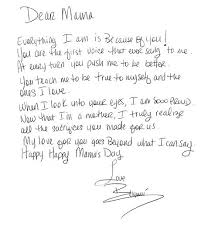 Dear Mama
Everything I am is Because of you!
You are the first voice that ever sang to me.
At every turn you push me to be better.
You teach me to be true to myself and the
ones I love.
When I look into your eyes, I am SOOO PROUD.
Now that I'm a mother, I truly realize
all the sacrifices you made for us
My love for you goes Beyond what I can say.
Happy Happy Mama's Day.
Love